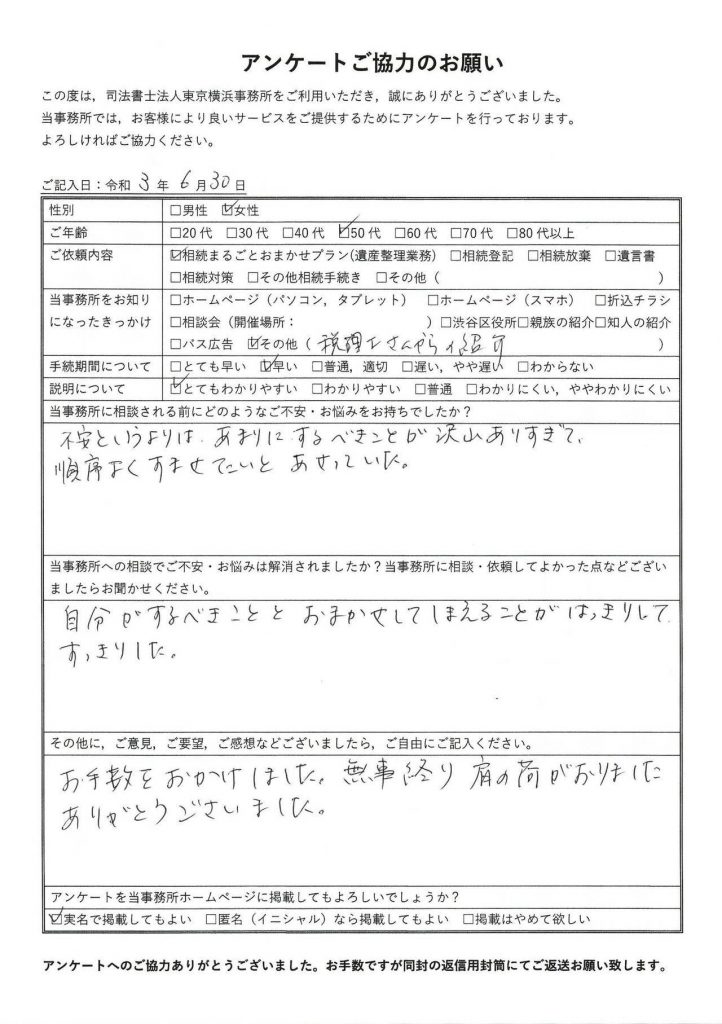 アンケートご協力のお願い
この度は，司法書士法人東京横浜事務所をご利用いただき，誠にありがとうございました。
当事務所では，お客様により良いサービスをご提供するためにアンケートを行っております。
よろしければご協力ください。
ご記入日：令和 3 年 6 月 30 日
性別 □男性 ☑女性
ご年齢 □20 代 □30 代 □40 代 ☑50 代 □60 代 □70 代 □80 代以上
ご依頼内容 ☑相続まるごとおまかせプラン(遺産整理業務) □相続登記 □相続放棄 □遺言書
□相続対策 □その他相続手続き □その他（ ）
当事務所をお知り □ホームページ（パソコン，タブレット） □ホームページ（スマホ） □折込チラシ
になったきっかけ □相談会（開催場所： ）□渋谷区役所□親族の紹介□知人の紹介
□バス広告 ☑その他（税理士さんから紹介 ）
手続期間について □とても早い ☑早い □普通，適切 □遅い，やや遅い □わからない
説明について ☑とてもわかりやすい □わかりやすい □普通 □わかりにくい，ややわかりにくい
当事務所に相談される前にどのようなご不安・お悩みをお持ちでしたか？
不安というよりは、あまりにするべきことが沢山ありすぎて、
順序よくすませたいとあせっていた。
当事務所への相談でご不安・お悩みは解消されましたか？当事務所に相談・依頼してよかった点などござい
ましたらお聞かせください。
自分がするべきことと おまかせしてしまえることがはっきりして
すっきりした。
その他に，ご意見，ご要望，ご感想などございましたら，ご自由にご記入ください。
お手数をおかけしました。無事終り 肩の荷がおりました
ありがとうございました。
アンケートを当事務所ホームページに掲載してもよろしいでしょうか？
☑実名で掲載してもよい □匿名（イニシャル）なら掲載してもよい □掲載はやめて欲しい
アンケートへのご協力ありがとうございました。お手数ですが同封の返信用封筒にてご返送お願い致します。